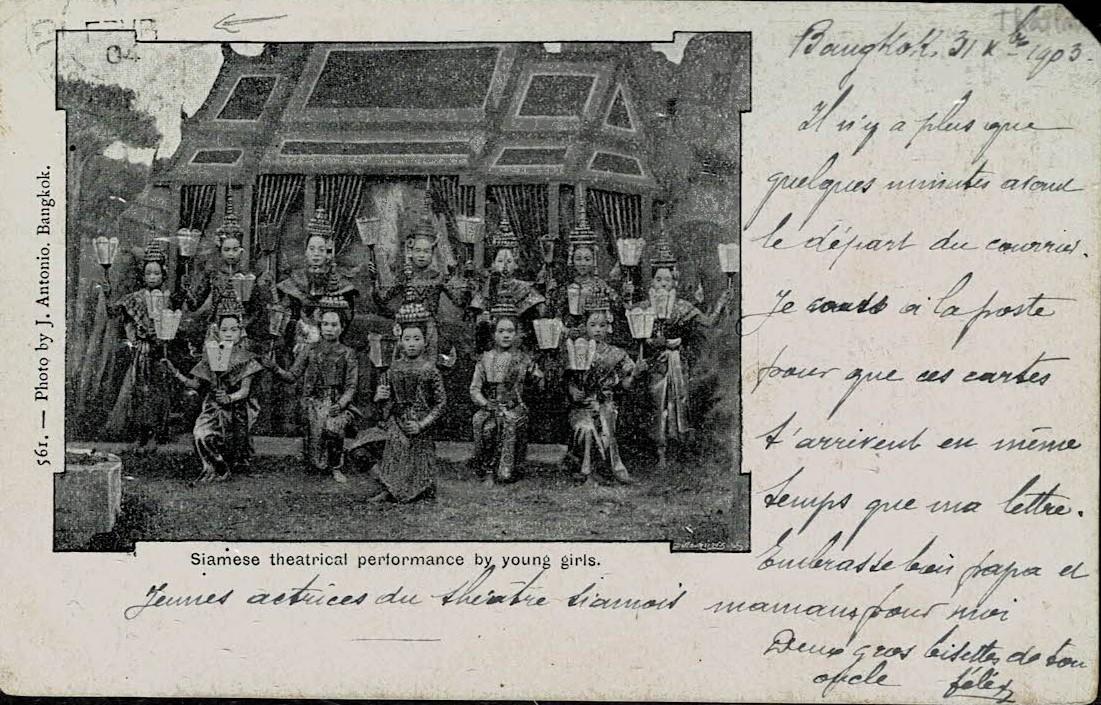 FEVR
04
561. — Photo by J. Antonio. Bangkok.
Siamese theatrical performance by young girls.
Jeunes actrices du théâtre siamois
Bangkok, 31 Xbre 1903.
Il n'y a plus que
quelques minutes avant
le départ du courrier.
Je cours à la poste
pour que ces cartes
t'arrivent en même
temps que ma lettre.
Embrasse bien papa et
maman pour moi
Deux gros bisettes de ton
oncle félix